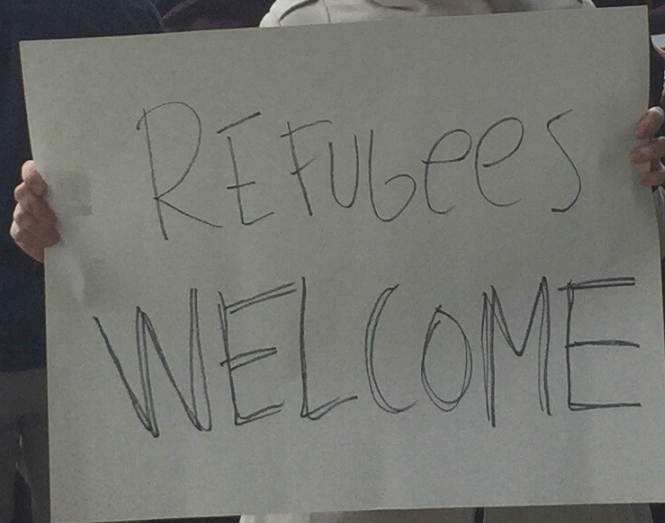 REFUGees
WELCOME